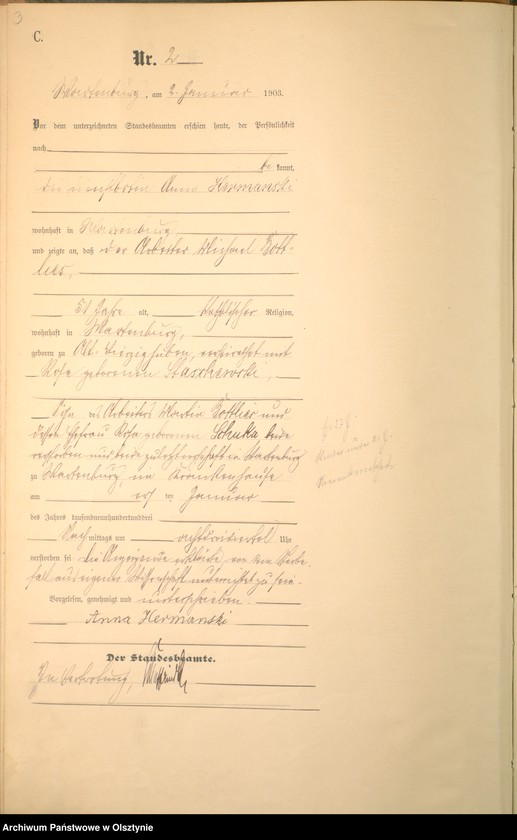 3
C.
Nr. 2
Wartenburg, am 2. Januar 1903.
Vor dem unterzeichneten Standesbeamten erschien heute, der Persönlichkeit
nach
be kannt,
die Anna Hermanski
wohnhaft in Wartenburg
und zeigte an, daß der Arbeiter Michael Gott-
lies,
51 Jahre alt, katholischer Religion,
wohnhaft in Wartenburg,
geboren zu verheirathet mit
Rosa geborenen Staschewski,
Sohn des Arbeiters Martin Gottlies und
dessen Ehefrau Rosa geborenen Schuka, beide
verstorben und beide zuletzt wohnhaft in Wartenburg
zu Wartenburg, im Krankenhause
am ersten Januar
des Jahres tausendneunhundertunddrei
Nach mittags um Uhr
verstorben sei. Die Anzeigende erklärte, von dem Sterbe-
fall aus eigener Wissenschaft unterrichtet zu sein.
Vorgelesen, genehmigt und unterschrieben.
Anna Hermanski
Der Standesbeamte.
In Vertretung,
Archiwum Państwowe w Olsztynie